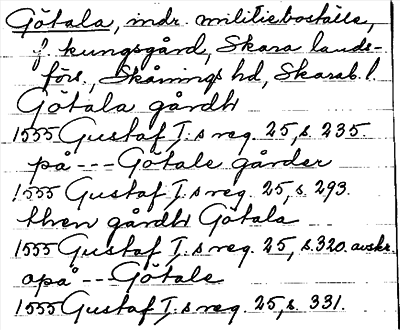 Götala, indr. militieboställe,
f. kungsgård, Skara lands-
förs., Skånings hd, Skarab. l.
Götala gårdh
1555 Gustaf I:s reg. 25, s. 235.
på --- Götale gårder
1555 Gustaf I:s reg. 25, s. 293.
then gårdh Götala
1555 Gustaf I:s reg. 25, s. 320. avskr.
opå --- Götale
1555 Gustaf I:s reg. 25, s. 331.